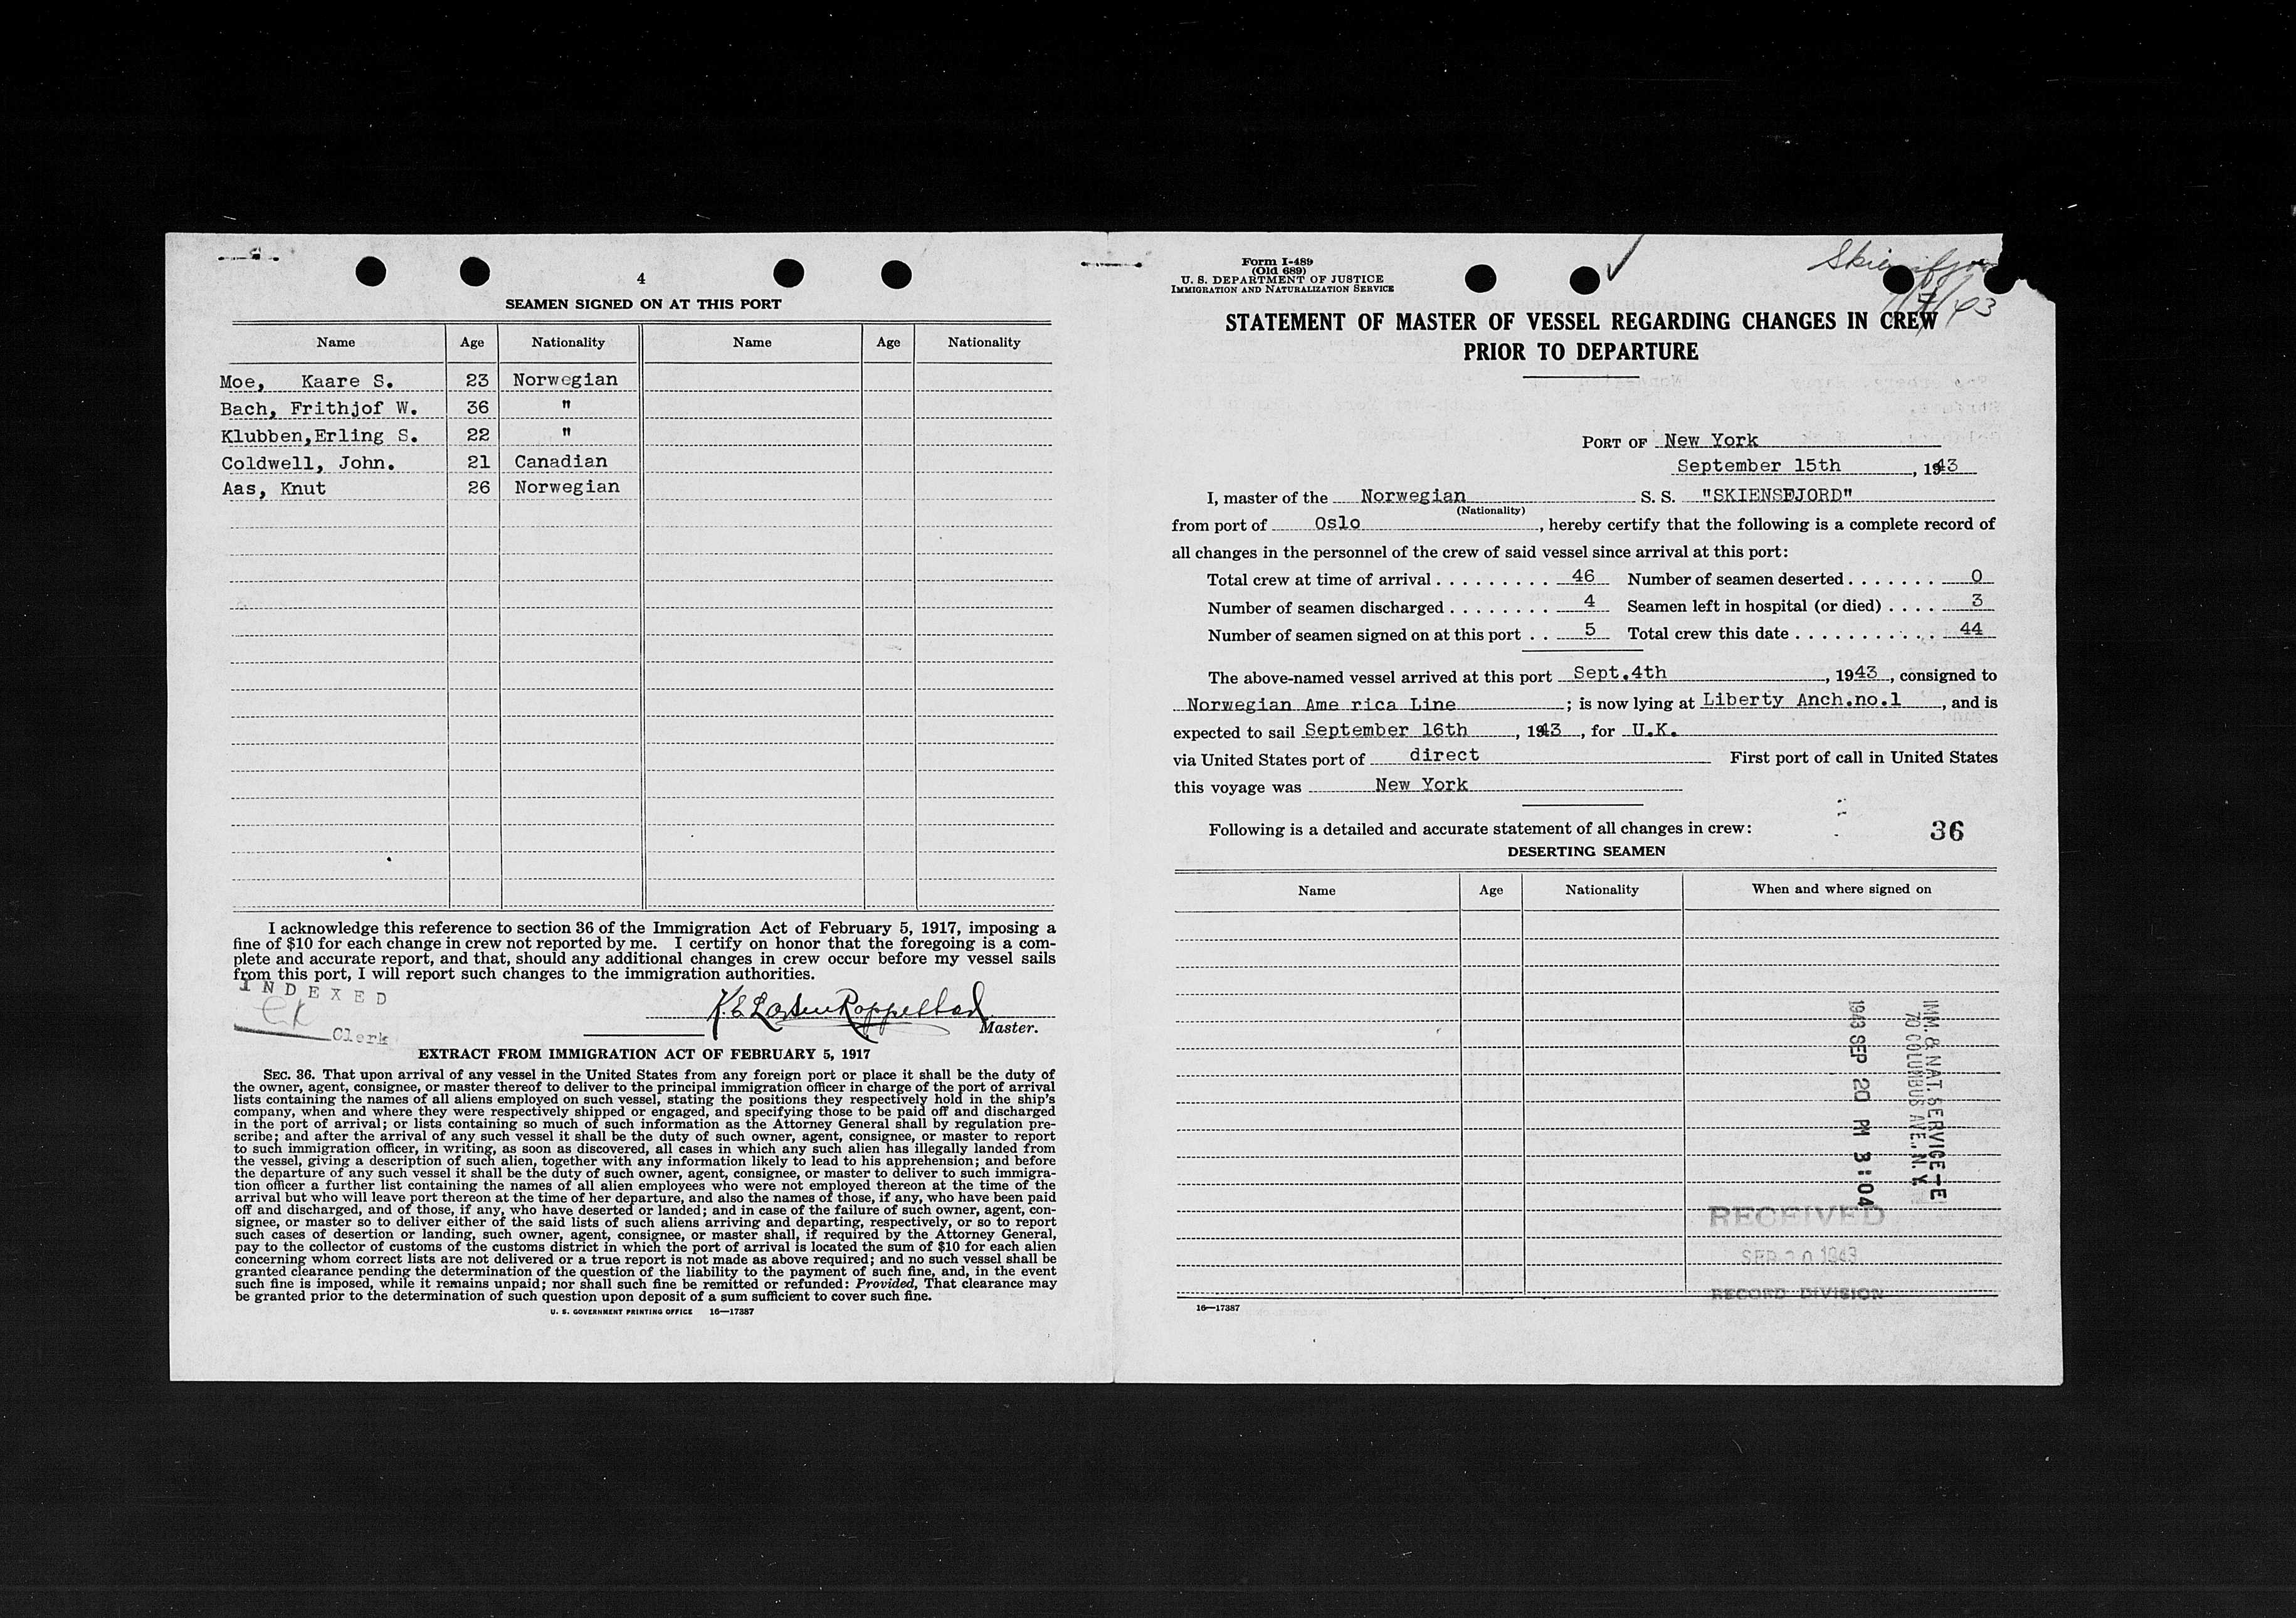 4
SEAMEN SIGNED ON AT THIS PORT
Name Age Nationality Name Age Nationality
Moe, Kaare S. 23 Norwegian
Bach, Frithjof W. 36 "
Klubben,Erling S. 22 "
Coldwell, John. 21 Canadian
Aas, Knut 26 Norwegian
I acknowledge this reference to section 36 of the Immigration Act of February 5, 1917, imposing a
fine of $10 for each change in crew not reported by me. I certify on honor that the foregoing is a com-
plete and accurate report, and that, should any additional changes in crew occur before my vessel sails
from this port, I will report such changes to the immigration authorities.
INDEXED
Clerk
Master.
EXTRACT FROM IMMIGRATION ACT OF FEBRUARY 5, 1917
SEC. 36. That upon arrival of any vessel in the United States from any foreign port or place it shall be the duty of
the owner, agent, consignee, or master thereof to deliver to the principal immigration officer in charge of the port of arrival
lists containing the names of all aliens employed on such vessel, stating the positions they respectively hold in the ship's
company, when and where they were respectively shipped or engaged, and specifying those to be paid off and discharged
in the port of arrival; or lists containing so much of such information as the Attorney General shall by regulation pre-
scribe; and after the arrival of any such vessel it shall be the duty of such owner, agent, consignee, or master to report
to such immigration officer, in writing, as soon as discovered, all cases in which any such alien has illegally landed from
the vessel, giving a description of such alien, together with any information likely to lead to his apprehension; and before
the departure of any such vessel it shall be the duty of such owner, agent, consignee, or master to deliver to such immigra-
tion officer a further list containing the names of all alien employees who were not employed thereon at the time of the
arrival but who will leave port thereon at the time of her departure, and also the names of those, if any, who have been paid
off and discharged, and of those, if any, who have deserted or landed; and in case of the failure of such owner, agent, con-
signee, or master so to deliver either of the said lists of such aliens arriving and departing, respectively, or so to report
such cases of desertion or landing, such owner, agent, consignee, or master shall, if required by the Attorney General,
pay to the collector of customs of the customs district in which the port of arrival is located the sum of $10 for each alien
concerning whom correct lists are not delivered or a true report is not made as above required; and no such vessel shall be
granted clearance pending the determination of the question of the liability to the payment of such fine, and, in the event
such fine is imposed, while it remains unpaid; nor shall such fine be remitted or refunded: Provided, That clearance may
be granted prior to the determination of such question upon deposit of a sum sufficient to cover such fine.
U. S. GOVERNMENT PRINTING OFFICE 16—17387
Form I-489
(Old 689)
U. S. DEPARTMENT OF JUSTICE
IMMIGRATION AND NATURALIZATION SERVICE
STATEMENT OF MASTER OF VESSEL REGARDING CHANGES IN CREW
PRIOR TO DEPARTURE
PORT OF New York
September 15th, 1943
I, master of the Norwegian S. S. "SKIENSFJORD"
(Nationality)
from port of Oslo, hereby certify that the following is a complete record of
all changes in the personnel of the crew of said vessel since arrival at this port:
Total crew at time of arrival . . . . . . . . . 46 Number of seamen deserted . . . . . . . 0
Number of seamen discharged . . . . . . . . 4 Seamen left in hospital (or died) . . . . 3
Number of seamen signed on at this port . . 5 Total crew this date . . . . . . . . . . . . 44
The above-named vessel arrived at this port Sept.4th, 1943, consigned to
Norwegian Ame rica Line; is now lying at Liberty Anch.no.1, and is
expected to sail September 16th, 1943, for U.K.
via United States port of direct First port of call in United States
this voyage was New York
Following is a detailed and accurate statement of all changes in crew:
36
DESERTING SEAMEN
Name Age Nationality When and where signed on
IMM. & NAT. SERVICE-E
70 COLUMBUS AVE. N.Y.
1943 SEP 20 PM 3:04
RECEIVED
SEP 20 1943
RECORD DIVISION
16—17387